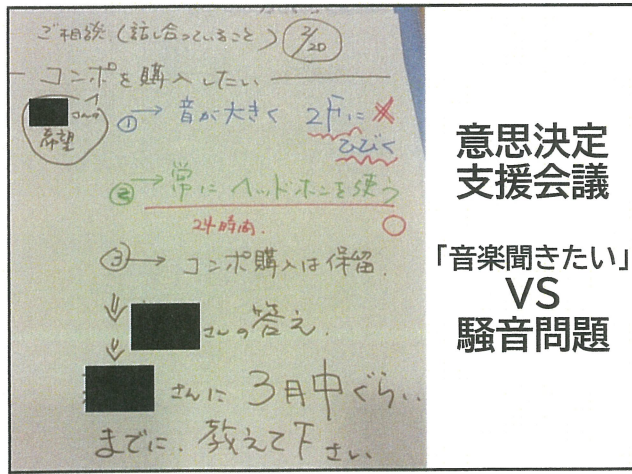 ご相談(話し合っていること) 2/20
コンポを購入したい
さんの
希望
① → 音が大きく 2Fに ×
ひびく
② → 常に ヘッドホンを使う
24時間. ○
③ → コンポ購入は保留.
⇓ さんの答え.
⇓
さんに 3月中ぐらい
までに、教えて下さい
意思決定
支援会議
「音楽聞きたい」
VS
騒音問題